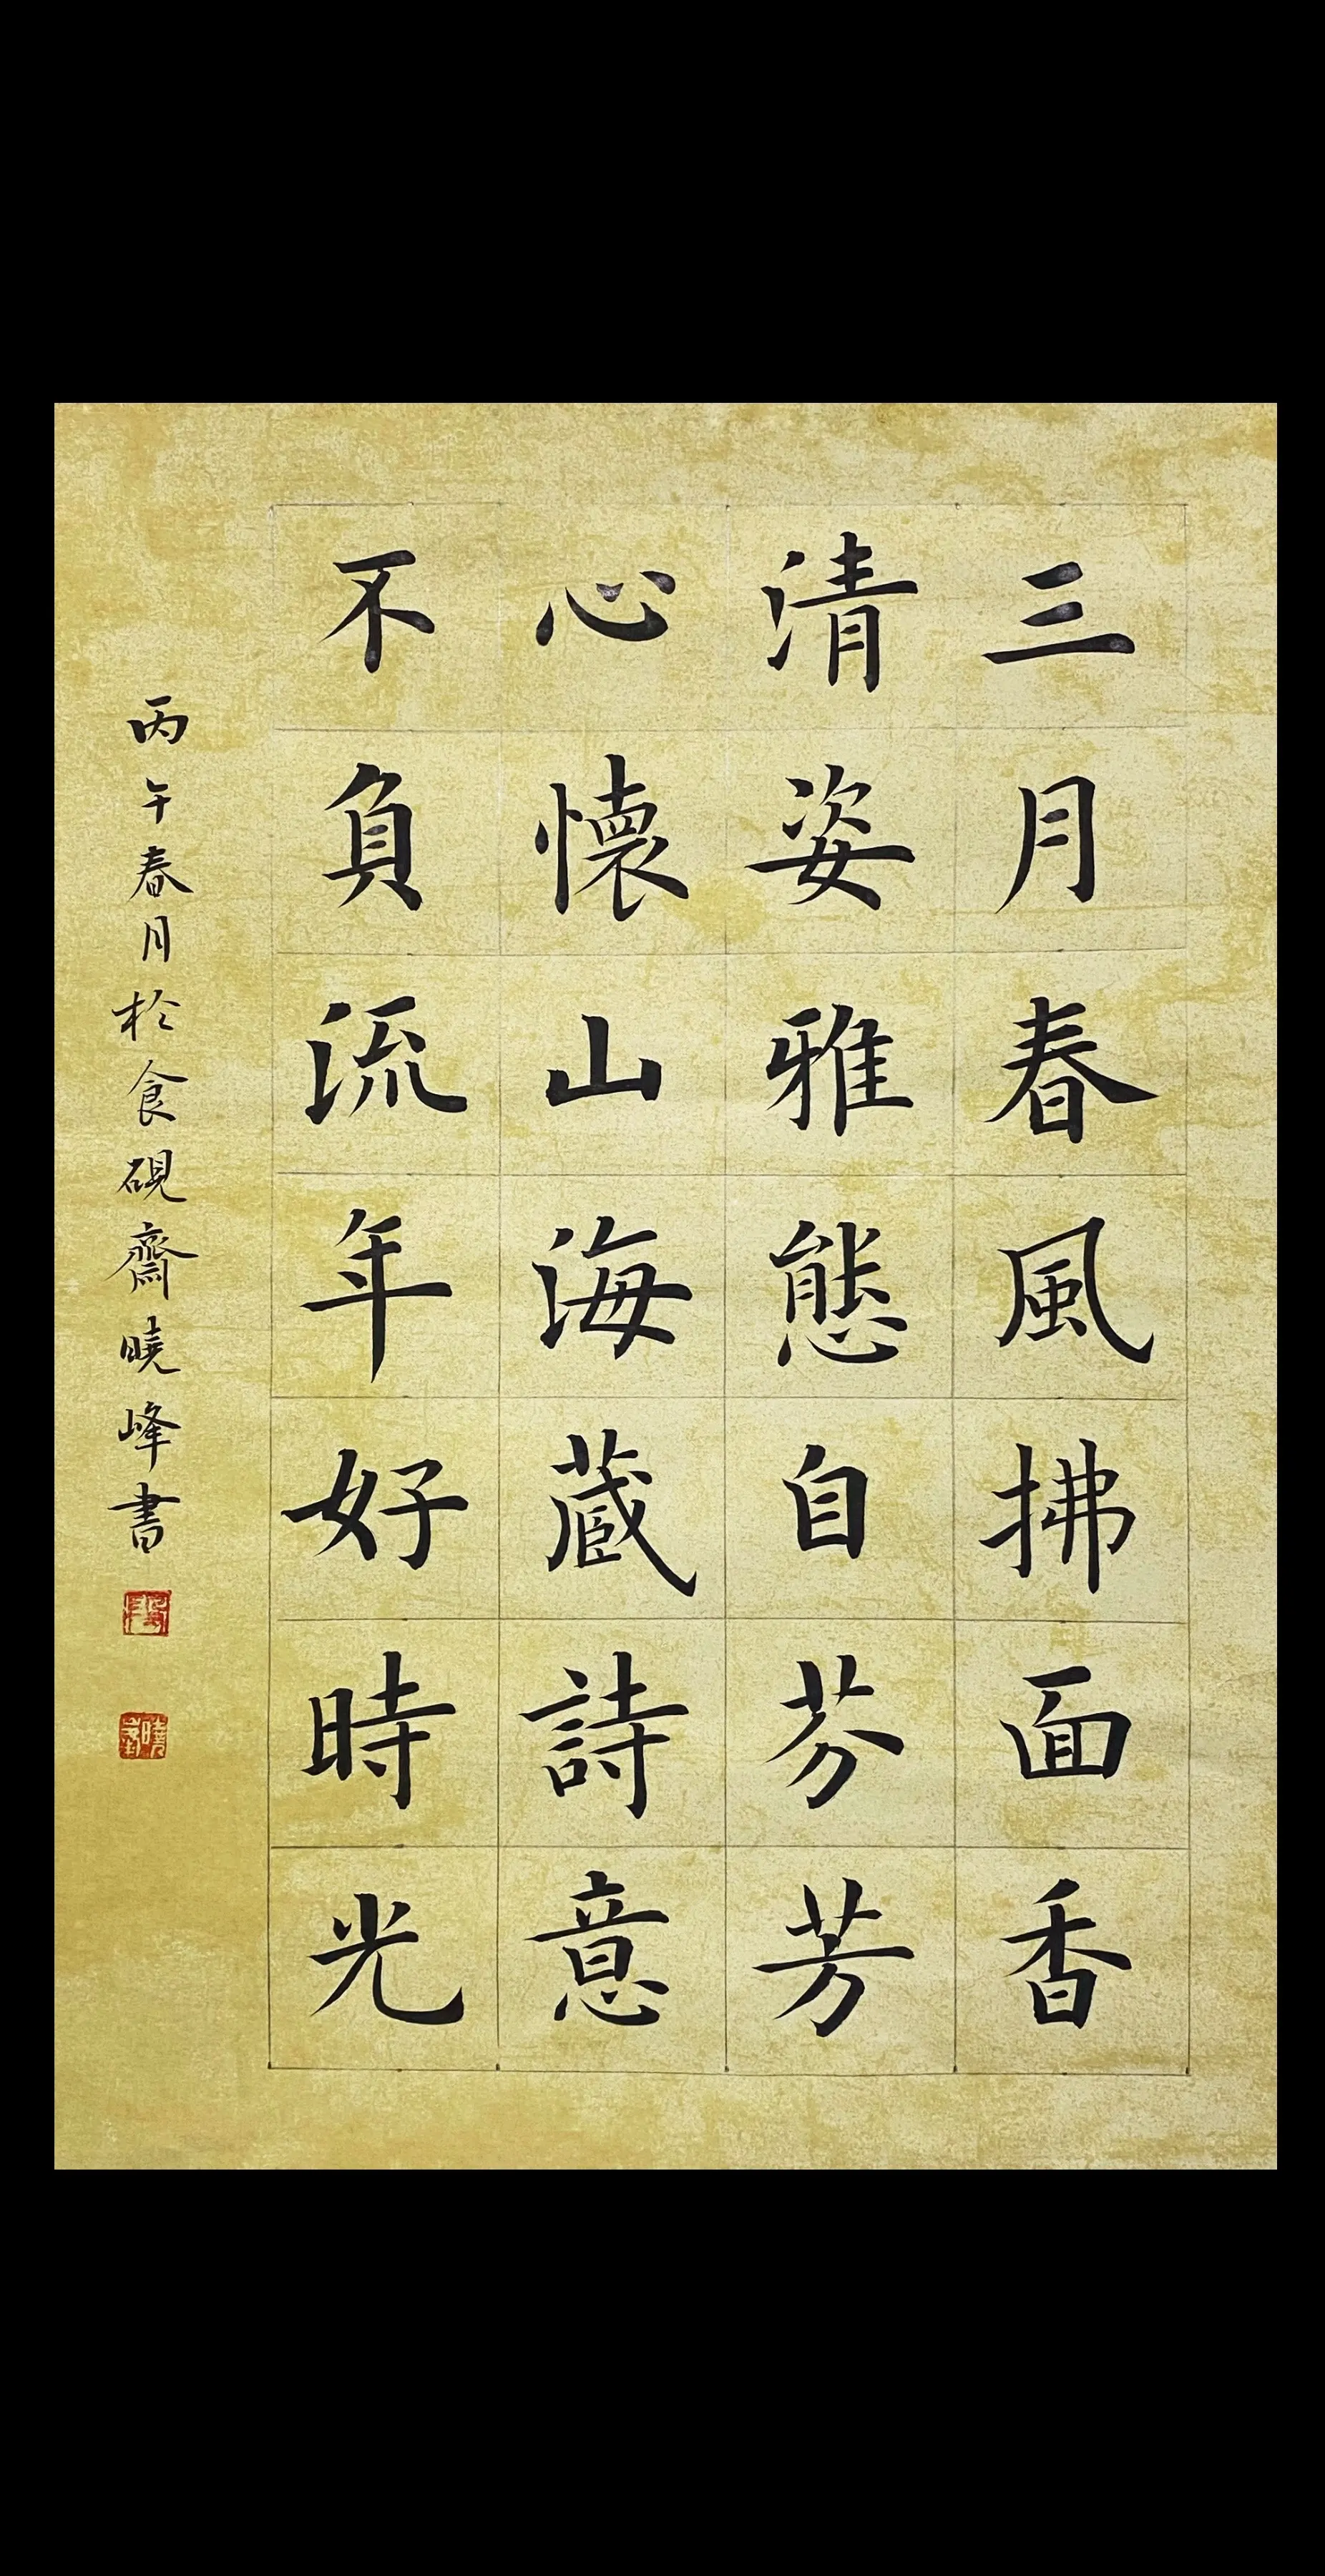 三月春風拂面香
清姿雅態自芬芳
心懷山海蔵詩意
不負流年好時光
丙午春月於食硯齋曉峰書